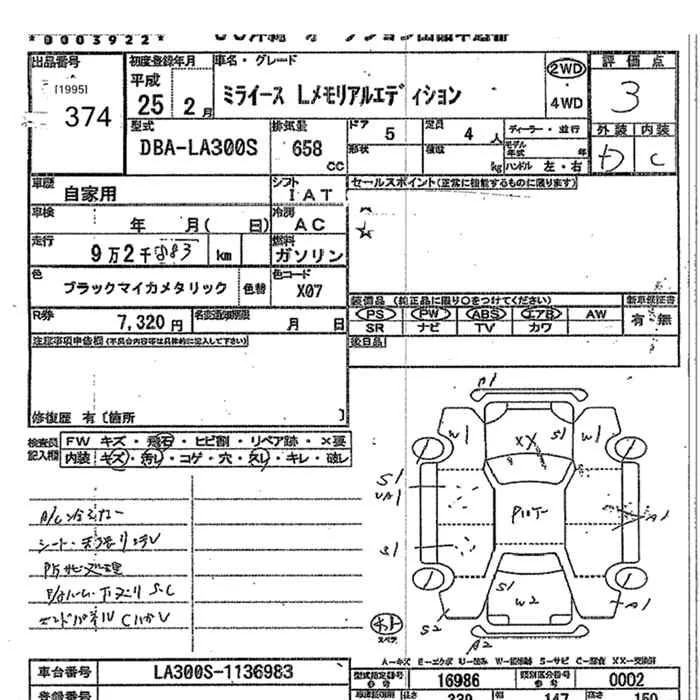 *0003922*
出品番号 [1995] 374
初度登録年月 平成 25 2月
車名・グレード ミライース Lメモリアルエディション
2WD
4WD
評価点 3
外装 内装 C
型式 DBA-LA300S
排気量 658 CC
ドア 5
定員 4 人
形状
積載 kg
ディーラー・並行
モデル年式 年
ハンドル 左・右
車歴 自家用
シフト IAT
セールスポイント(正常に機能するものに限ります)
☆
車検 年 月( 日)
冷房 AC
走行 9万2千883 km
燃料 ガソリン
色 ブラックマイカメタリック
色替
色コード X07
装備品 (純正品に限り○をつけてください)
新車保証書 有・無
PS PW ABS エアB AW
SR ナビ TV カワ
後日品
R券 7,320円
名変期限 月 日
注意事項申告欄(不具合内容等は具体的に記入して下さい)
修復歴 有〔箇所 〕
検査員記入欄
FW キズ・飛石・ヒビ割・リペア跡・×要
内装 キズ・汚れ・コゲ・穴・スレ・キレ・破レ
シート
防サビ処理
S・C
A1
W1 XY S1 W1
S1
UA1
PIOT
A1
S1
S1
W2
S2
A1
A2
スペア
A-キズ E-エクボ U-凹み W-波修跡 S-サビ C-腐食 XX-交換済
車台番号 LA300S-1136983
型式指定番号 16986
類別区分番号 0002
登録番号
長さ 339
幅 147
高さ 150